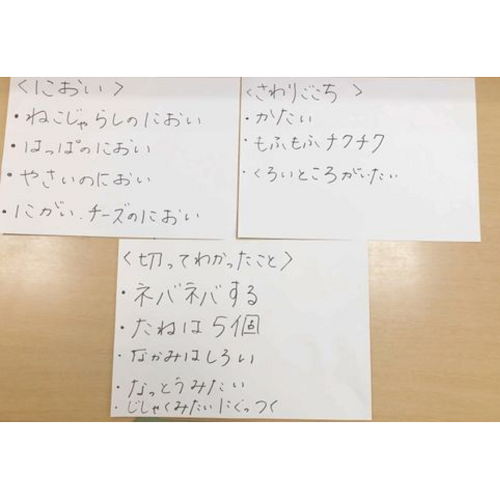 〈におい〉
・ねこじゃらしのにおい
・はっぱのにおい
・やさいのにおい
・にがい、チーズのにおい
〈さわりごこち〉
・かたい
・もふもふ、チクチク
・くろいところがいたい
〈切ってわかったこと〉
・ネバネバする
・たねは5個
・なかみはしろい
・なっとうみたい
・じしゃくみたいにくっつく